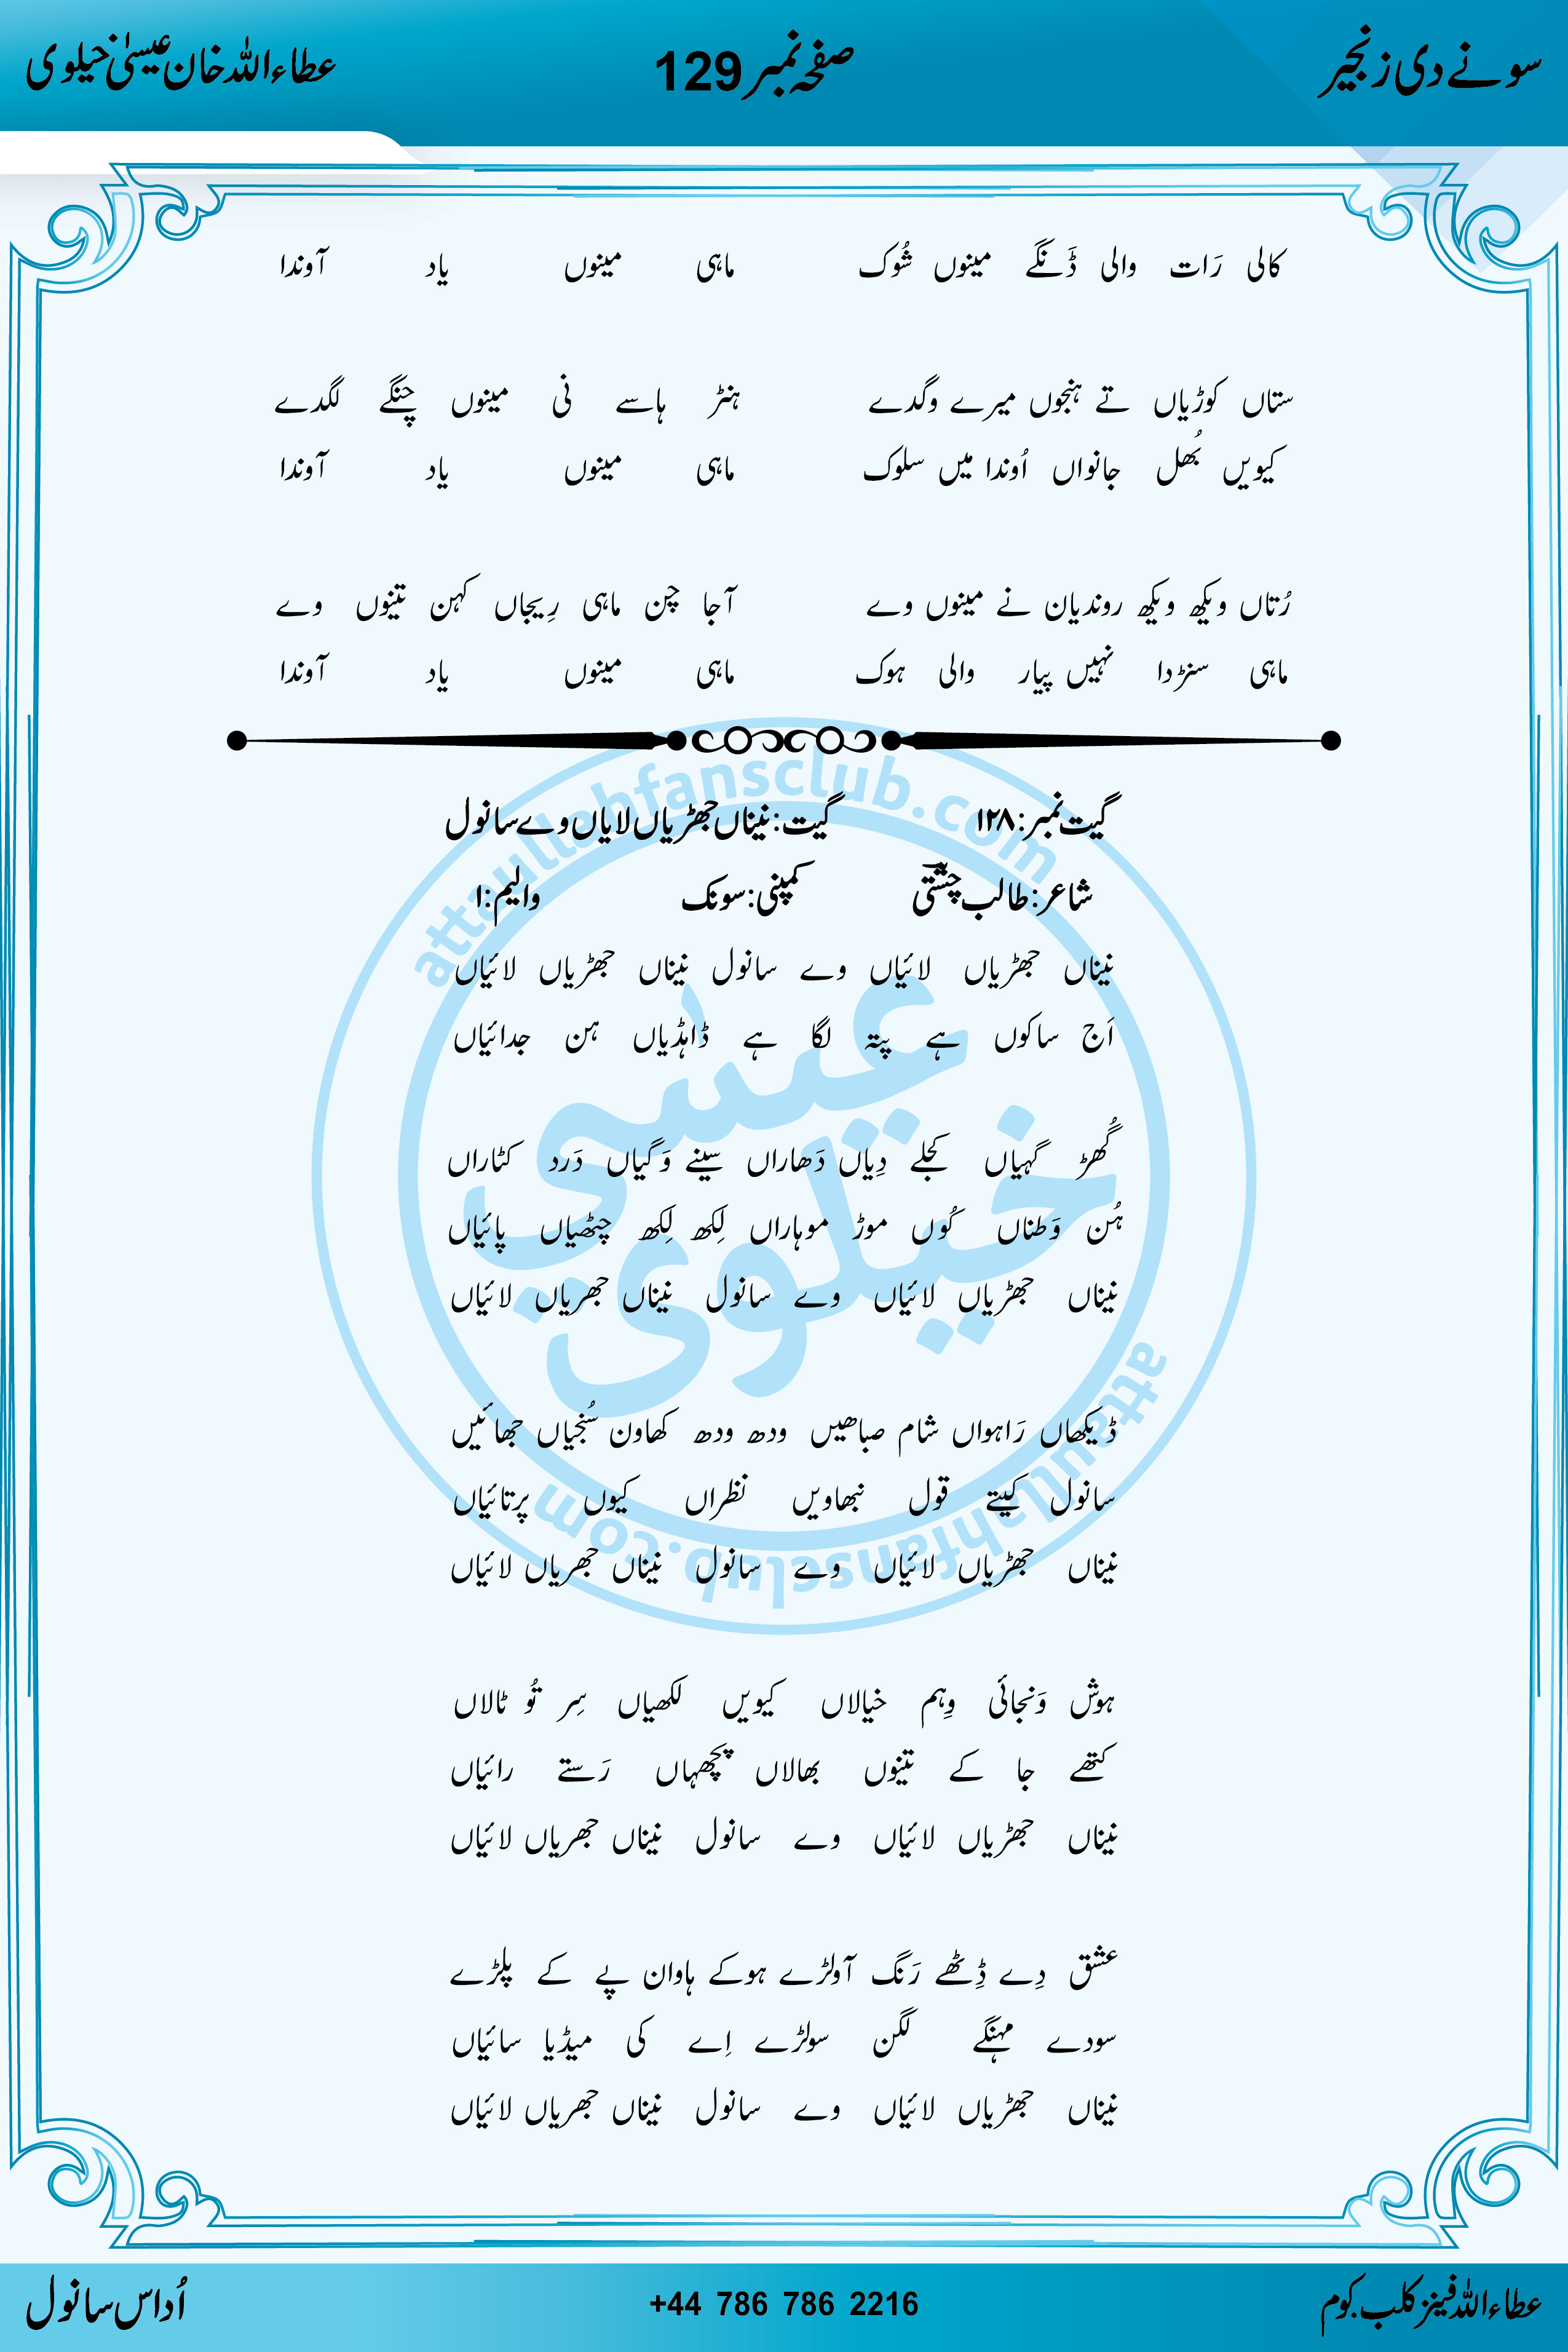 سونے دی زنجیر صفحہ نمبر 129 عطاءاللہ خان عیسیٰ خیلوی
کالی رَات والی ڈَنگے مینوں شُوک ماہی مینوں یاد آوندا
ستاں کوڑیاں تے ہنجوں میرے وگدے ہنڑ ہاسے نی مینوں چنگے لگدے
کیویں بُھل جانواں اُوندا میں سلوک ماہی مینوں یاد آوندا
رُتاں ویکھ ویکھ روندیاں نے مینوں وے آجا چن ماہی رِیجاں کہن تینوں وے
ماہی سنڑدا نہیں پیار والی ہوک ماہی مینوں یاد آوندا
گیت نمبر: ۱۲۸ گیت: نیناں جھڑیاں لایاں وے سانول
شاعر: طالب چشتی کمپنی: سونک والیم: ۱
نیناں جھڑیاں لائیاں وے سانول نیناں جھڑیاں لائیاں
اَج ساکوں ہے پتہ لگا ہے ڈاہڈیاں ہن جدائیاں
گُھڑ گہیاں کجلے دِیاں دَھاراں سینے وَگیاں دَرد کٹاراں
ہُن وَطناں کُوں موڑ موہاراں لِکھ لِکھ چٹھیاں پائیاں
نیناں جھڑیاں لائیاں وے سانول نیناں جھریاں لائیاں
ڈیکھاں رَاہواں شام صباحیں ودھ ودھ کھاون سُنجیاں جھائیں
سانول کیتے قول نبھاویں نظراں کیوں پرتائیاں
نیناں جھڑیاں لائیاں وے سانول نیناں جھریاں لائیاں
ہوش وَنجائی وِہم خیالاں کیویں لکھیاں سِر تُو ٹالاں
کتھے جا کے تینوں بھالاں پچھہاں رَستے رائیاں
نیناں جھڑیاں لائیاں وے سانول نیناں جھریاں لائیاں
عشق دِے ڈِٹھے رَنگ آولڑے ہوکے ہاوان پے کے پلڑے
سودے مہنگے لگن سولڑے اِے کی میڈیا سائیاں
نیناں جھڑیاں لائیاں وے سانول نیناں جھریاں لائیاں
attaullahfansclub.com
عیسی
خیلوی
attaullahfansclub.com
عطاءاللہ فینز کلب.کوم +44 786 786 2216 اُداس سانول